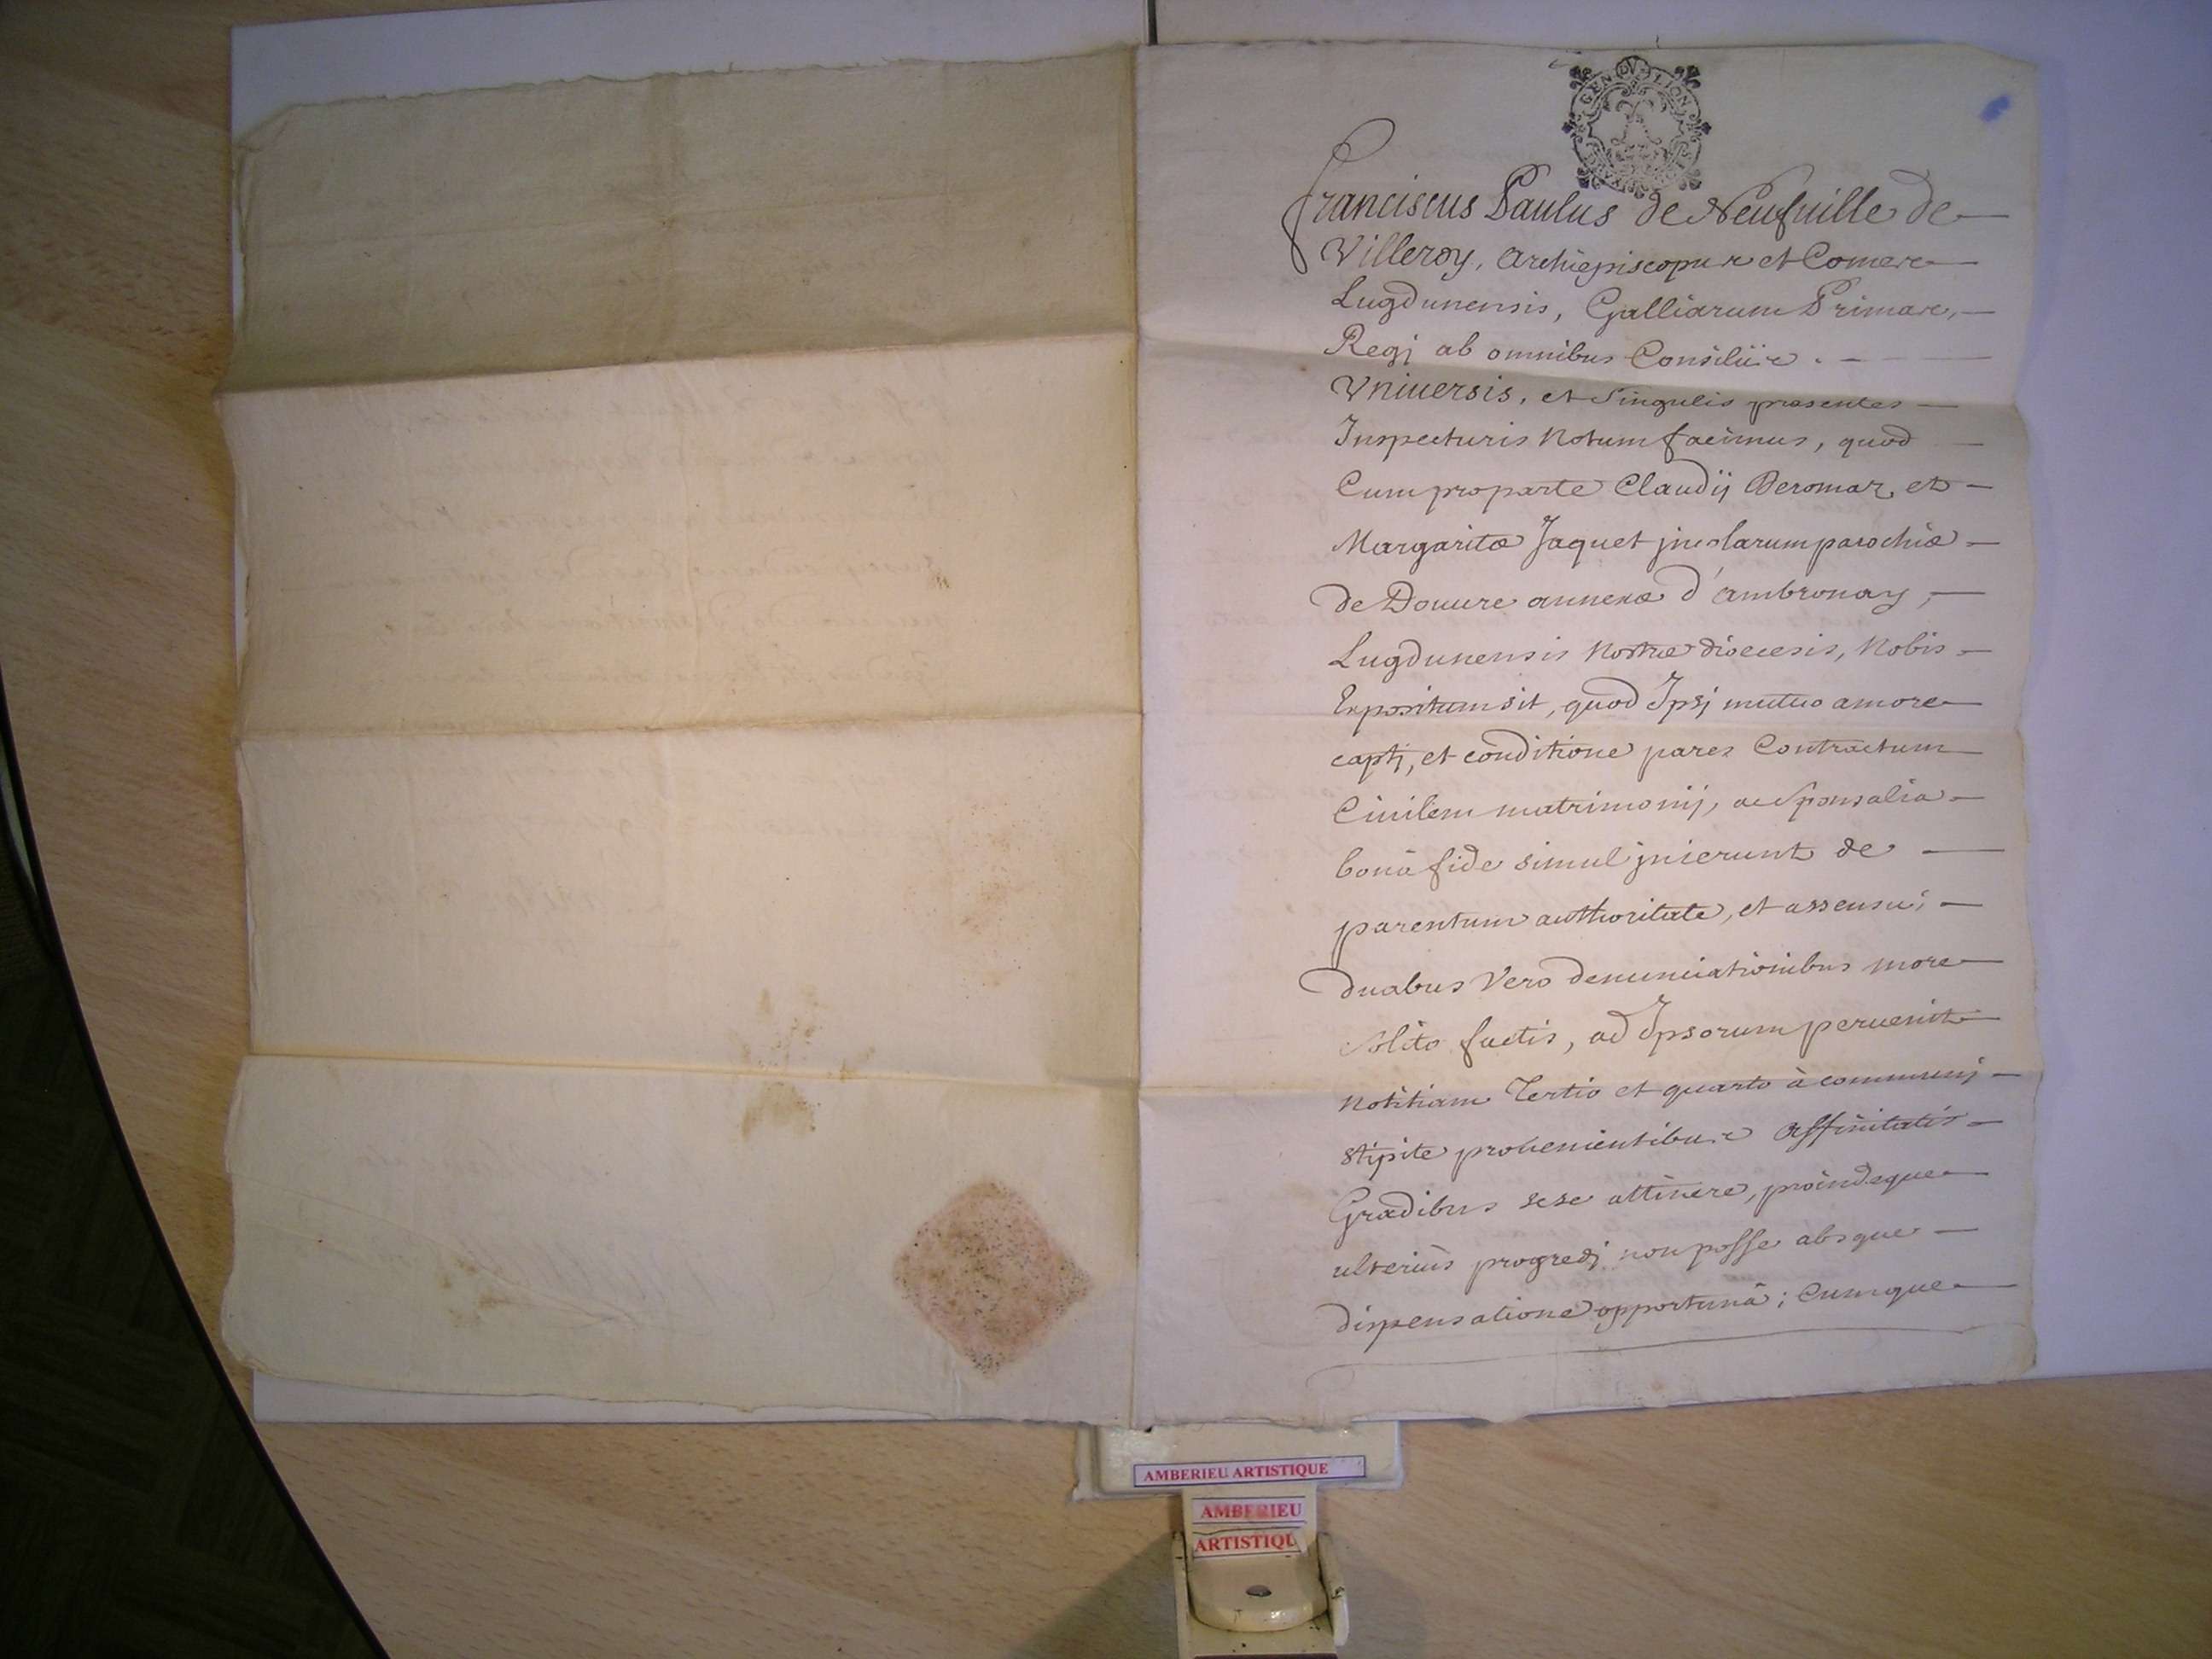 GEN DV LION
Franciscus Paulus de Neufuille de
Villeroy, Archiepiscopus et Comes
Lugdunensis, Galliarum Primas,
Regj ab omnibus Consiliis.
Vniuersis, et Singulis præsentes
Inspecturis Notum facimus, quod
Cum pro parte Claudij Deromaz, et
Margaritæ Jaquet jncolarum parochiæ
de Douure annexæ d'ambronay,
Lugdunensis Nostræ diœcesis, Nobis
Expositum sit, quod Jpsj mutuo amore
captj, et conditione pares Contractum
Ciuilem matrimonij, ac Sponsalia
bonâ fide simul jnierunt de
parentum authoritate, et assensu;
duabus Vero denunciationibus more
solito factis, ad Jpsorum peruenit
Notitiam Tertio et quarto à communj
stipite prouenientibus affinitatis
Gradibus sese attinere, proindeque
ulteriùs progredj non posse absque
dispensatione opportunâ; Cumque
AMBERIEU ARTISTIQUE
AMBERIEU
ARTISTIQU